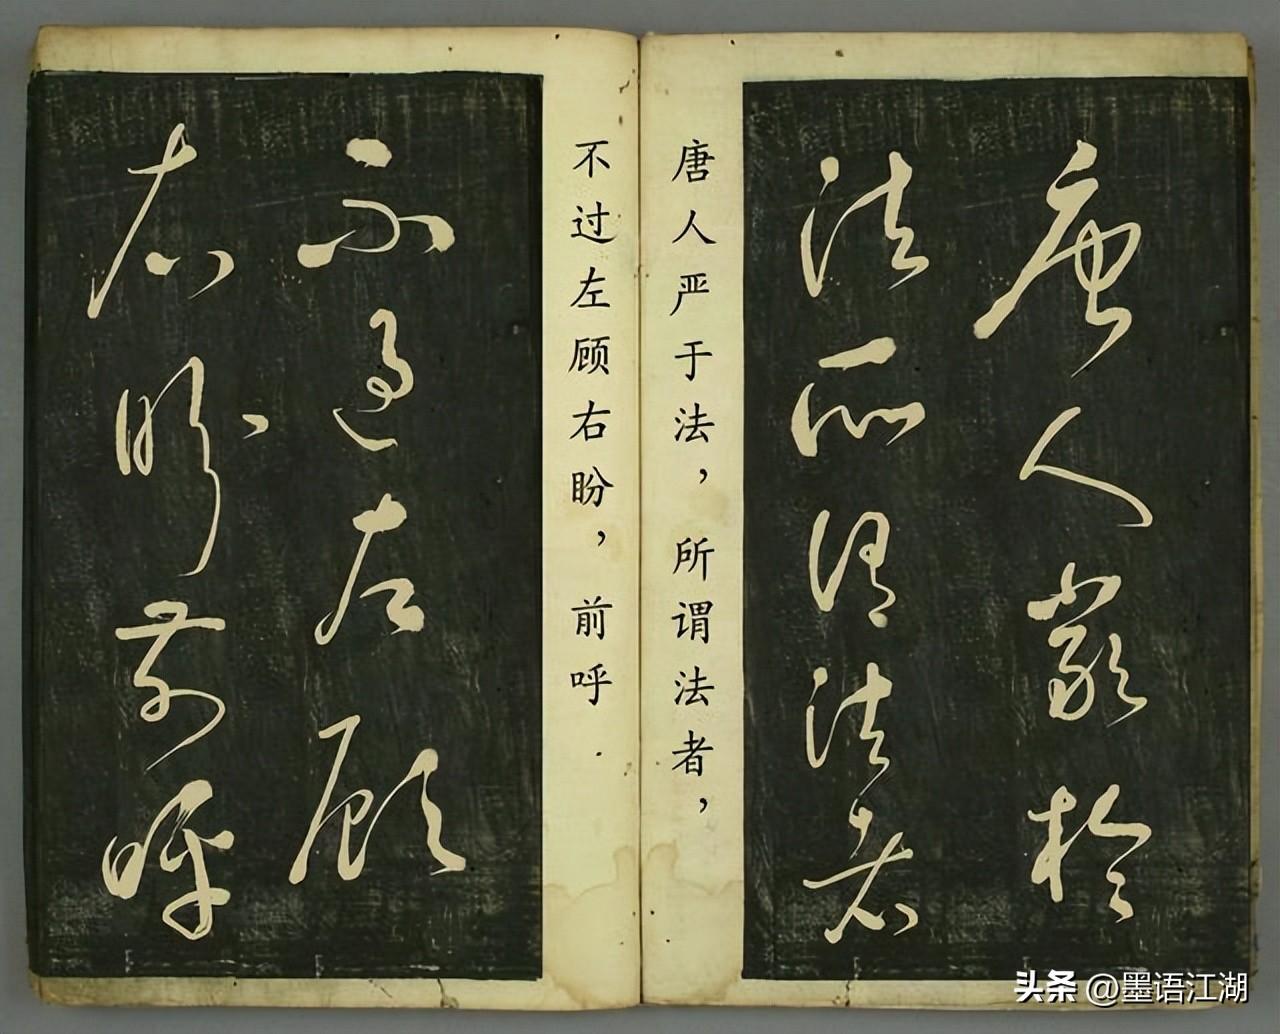 唐人嚴於
法所謂法者
唐人严于法，所谓法者，
不过左顾右盼，前呼
不過左顧
右盼前呼
头条 @墨语江湖